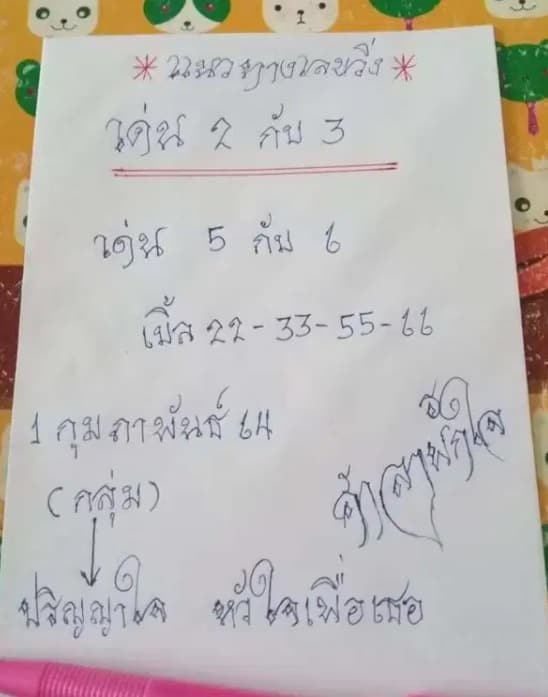 * แนวทางเลขวิ่ง *
เด่น 2 กับ 3
เด่น 5 กับ 6
เบิ้ล 22-33-55-66
1 กุมภาพันธ์ 64
(กลุ่ม)
ปริญญาใจ หัวใจเพื่อเธอ